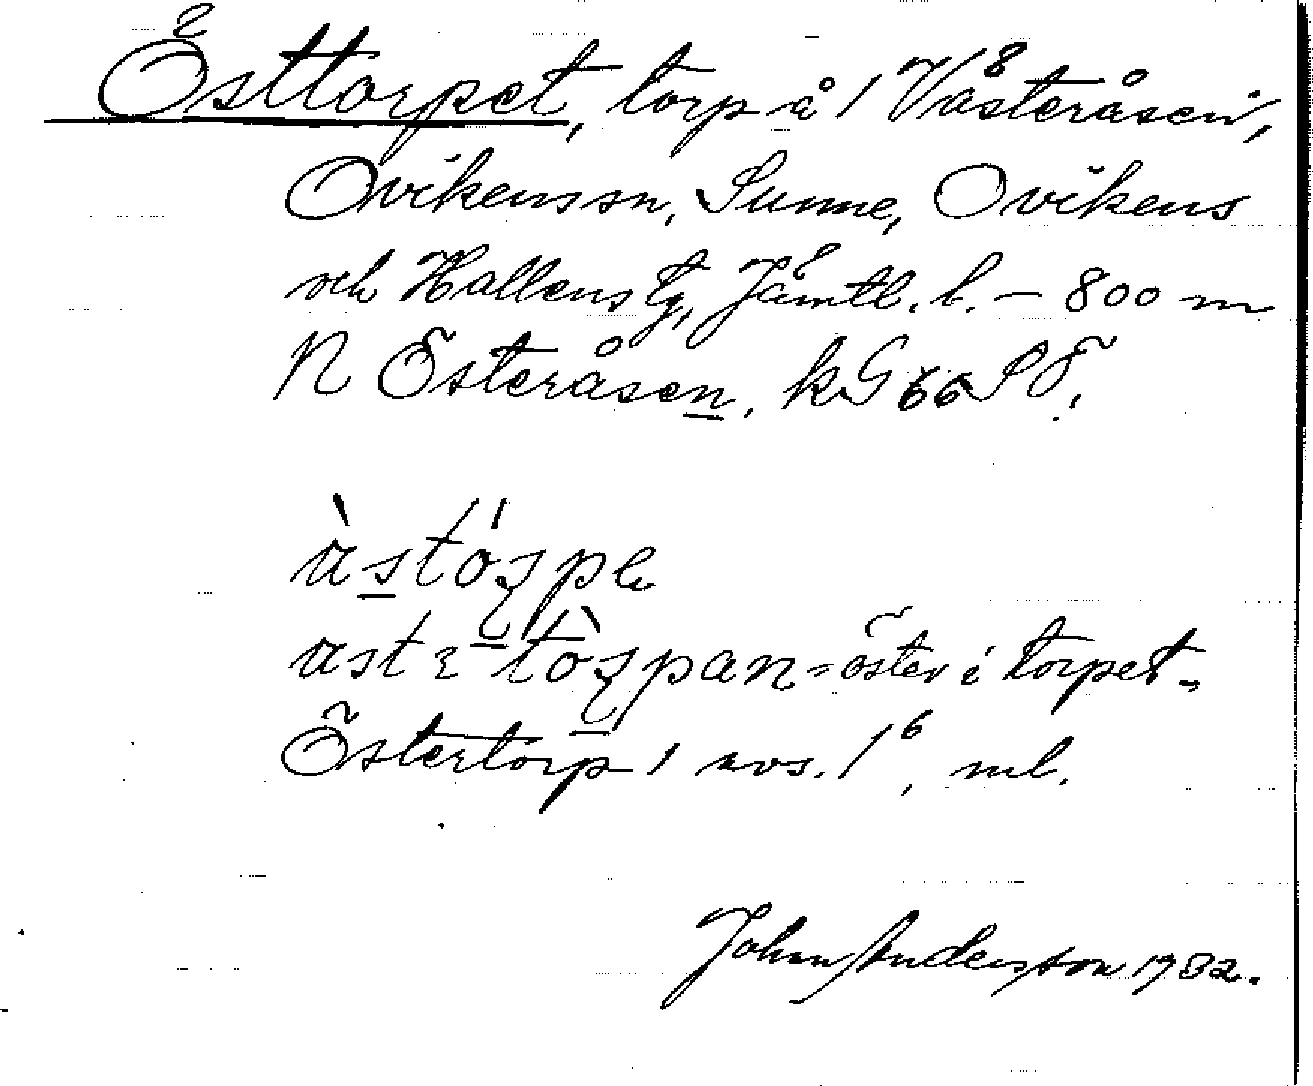 Östtorpet, torp å 1 Västeråsen,
Ovikens sn, Sunne, Ovikens
och Hallens tg, Jämtl. l. – 800 m
N Österåsen. kG 66 SO.
àstó pe
ast tò pan = öster i torpet.
Östertorp 1 avs. 1⁶, ml.
John Andersson 1932.